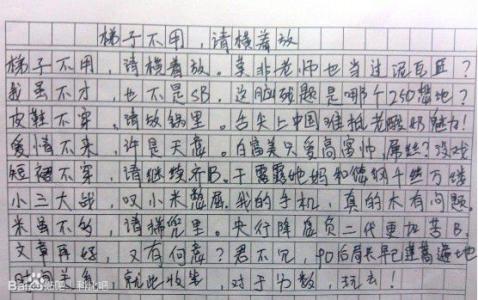 梯子不用,请横着放
梯子不用,请横着放。莫非老师也当过泥瓦匠?
我虽不才,也不是SB,这脑残题是哪个250出地?
皮鞋不穿,请放锅里。舌尖上中国难挡老酸奶魅力!
爱情不来,许是天意。白富美只爱高富帅,屌丝?没戏
短裙不穿,请继续齐B。干露露她妈和你纲千丝万缕
小三大战,叹小米憋屈。我的手机,真的木有问题。
米虽不多,请揣兜里。央行降息负二代更加苦B。
文章再好,又有何意?君不见,90后局长早已遍地
时间关系,就此收笔,对于分数,玩去!
Baidu贴吧